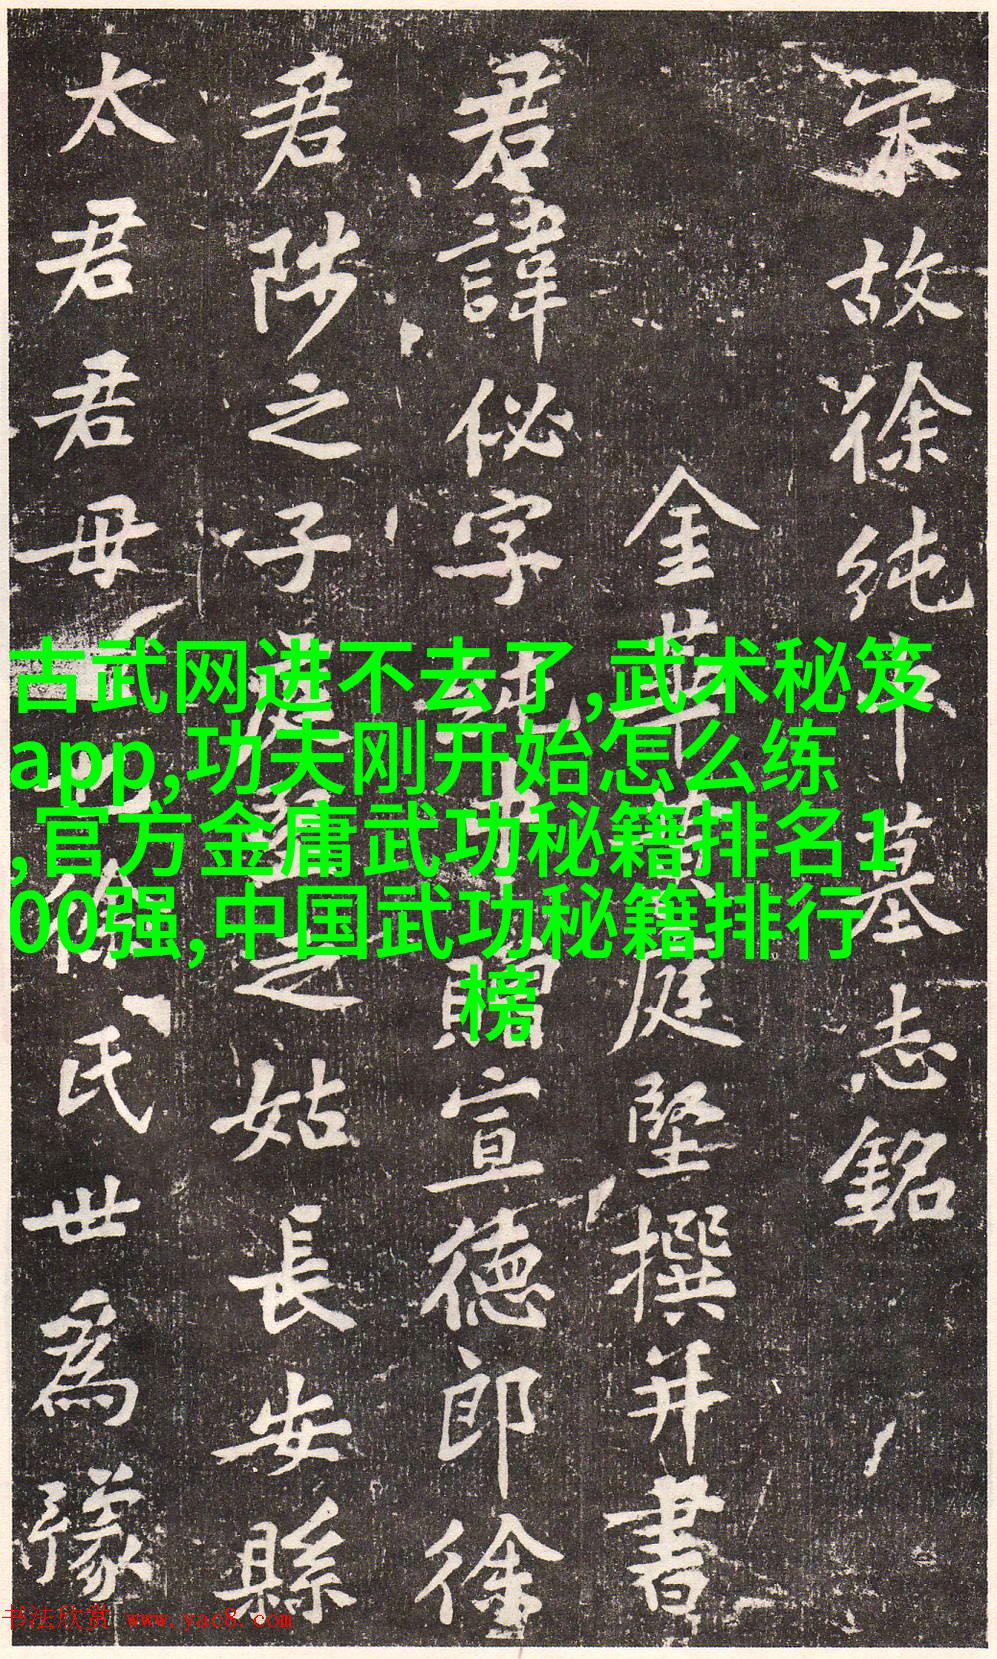 宋故徐純中墓志銘
金華庭堅撰并書
君諱佖字純中贈宣德郎徐
君陟之子之姑長安縣
太君君毋徐氏世為豫
古武网进不去了,武术秘笈
app,功夫刚开始怎么练
,官方金庸武功秘籍排名1
00强,中国武功秘籍排行
榜
书法欣赏 www.yac8.com